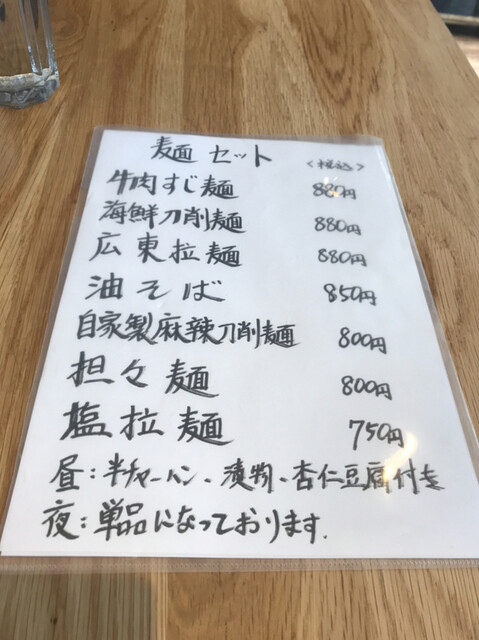 麺セット <税込>
牛肉すじ麺 880円
海鮮刀削麺 880円
広東拉麺 880円
油そば 850円
自家製麻辣刀削麺 800円
担々麺 800円
塩拉麺 750円
昼:半チャーハン、漬物、杏仁豆腐付き
夜:単品になっております.